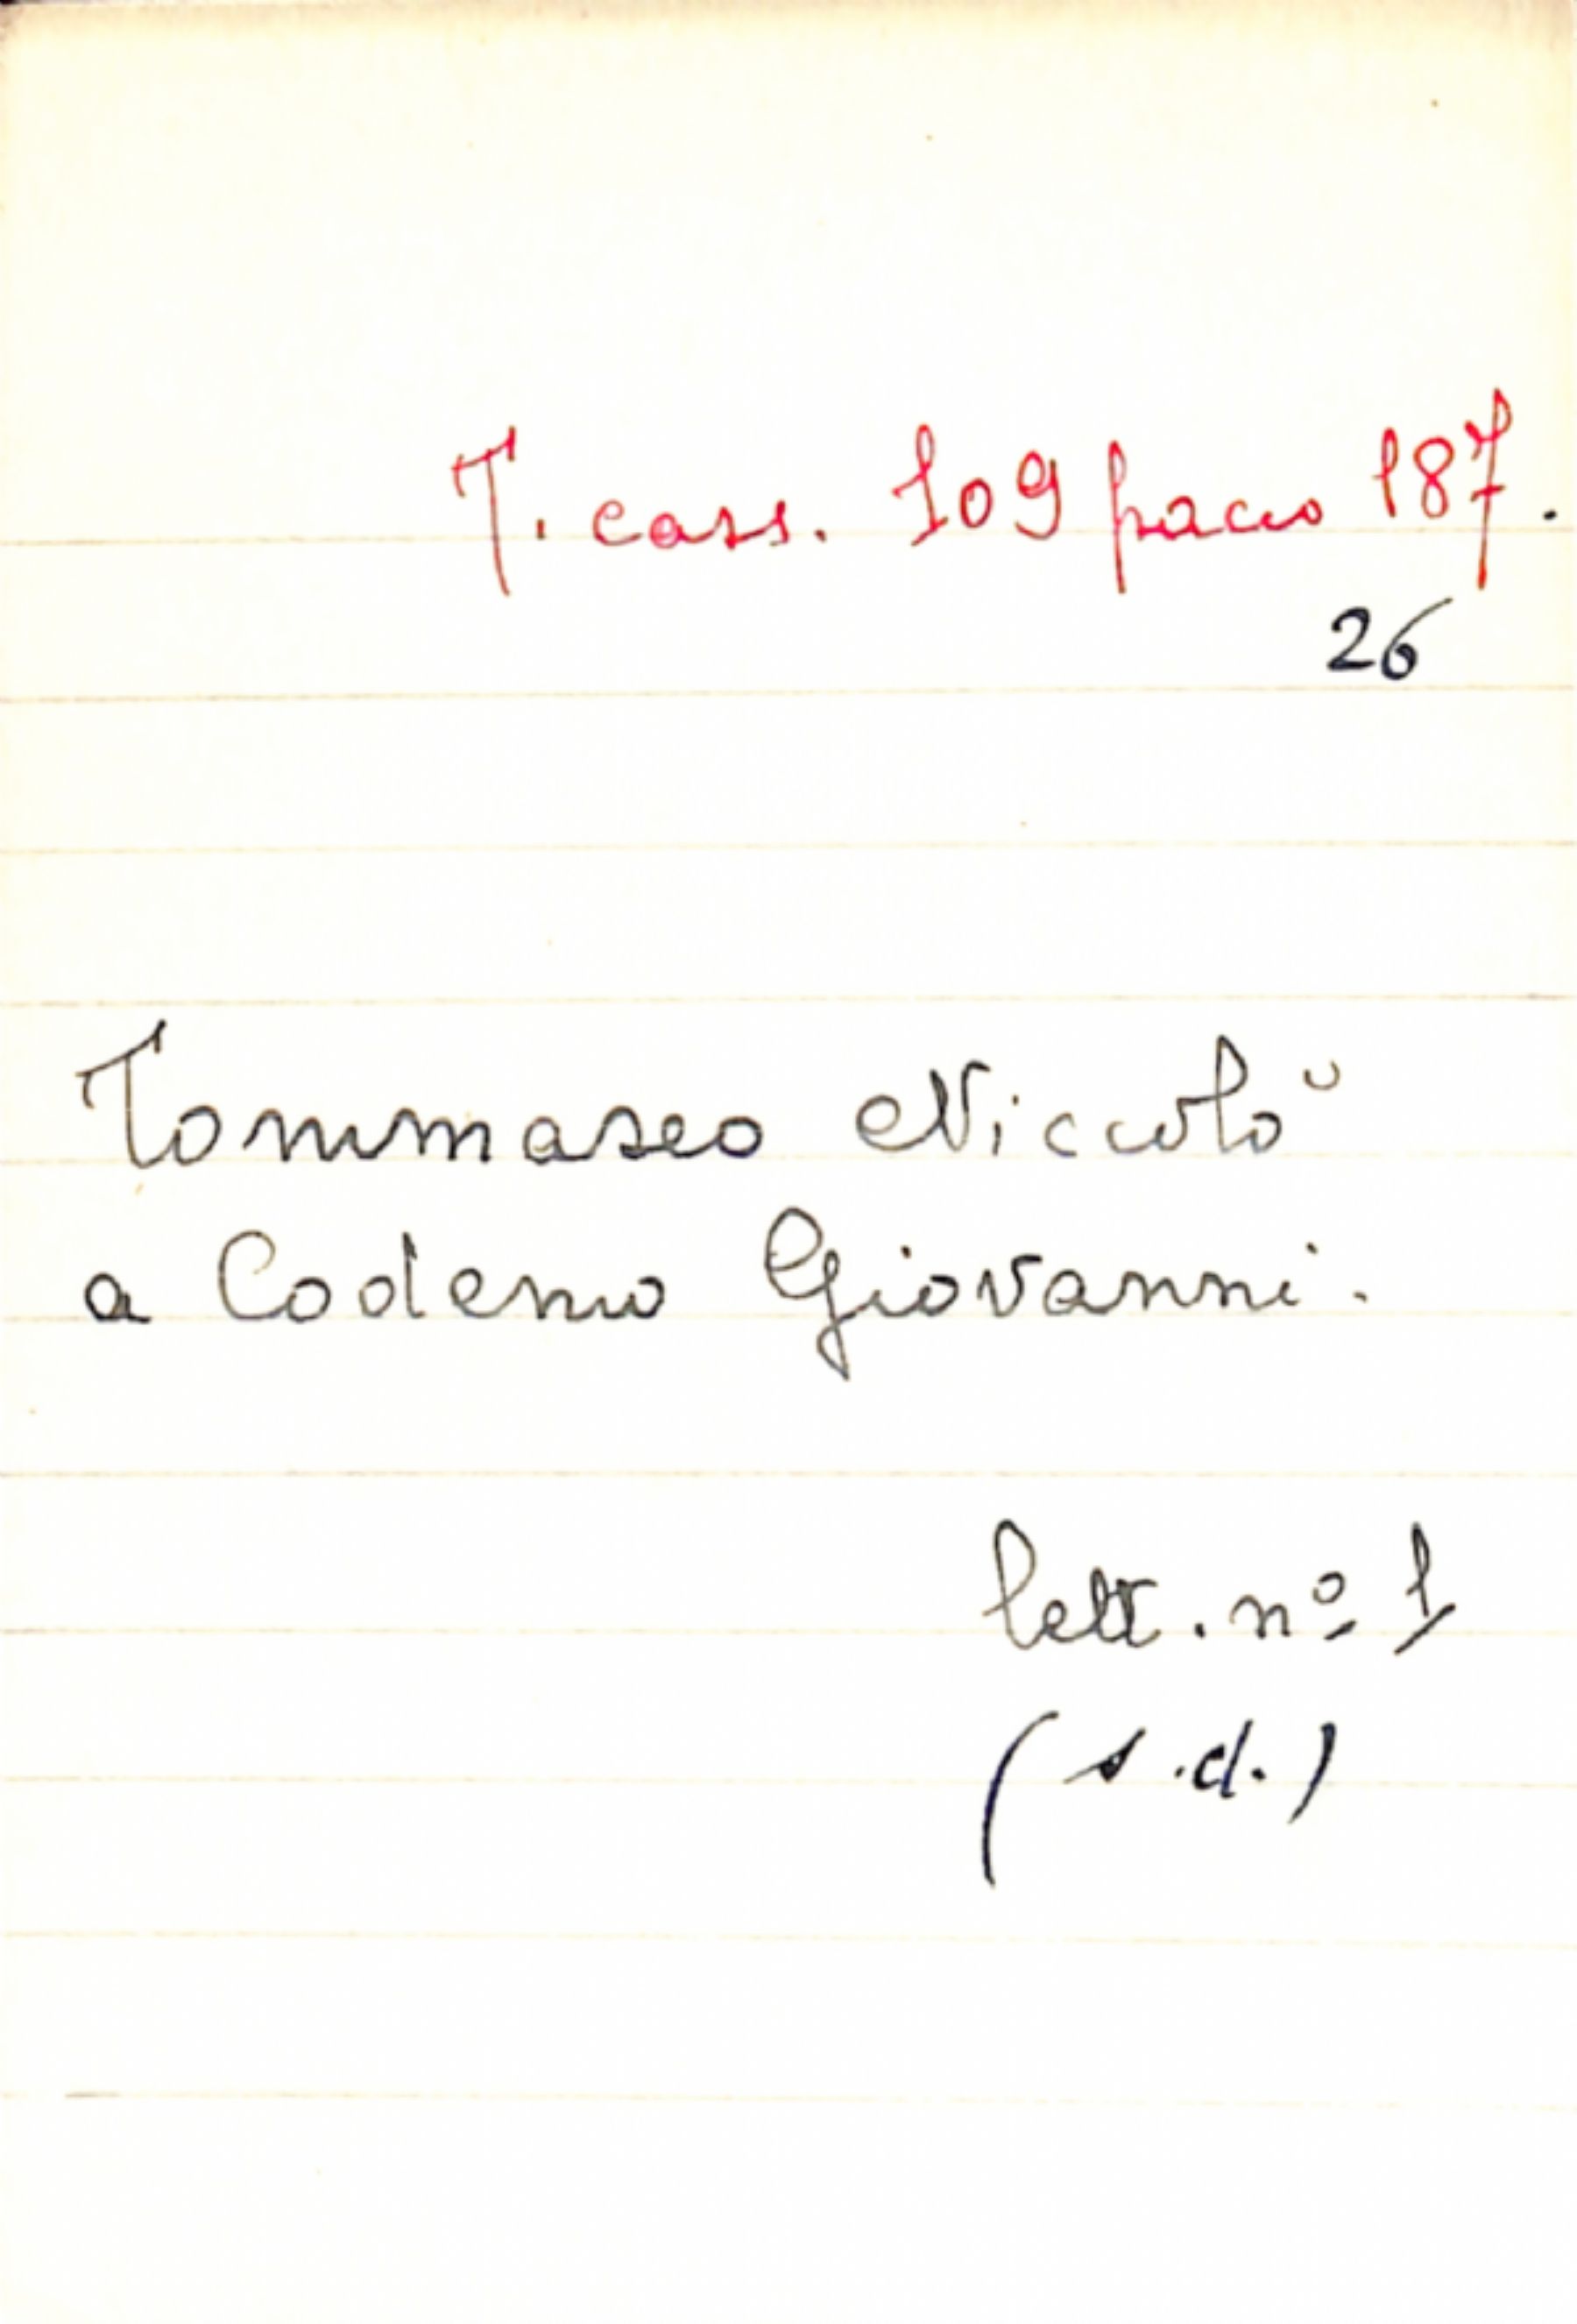 T. cass. 109 pacco 187.
26
Tommaseo Niccolò
a Codemo Giovanni.
lett. nº 1
(s.d.)